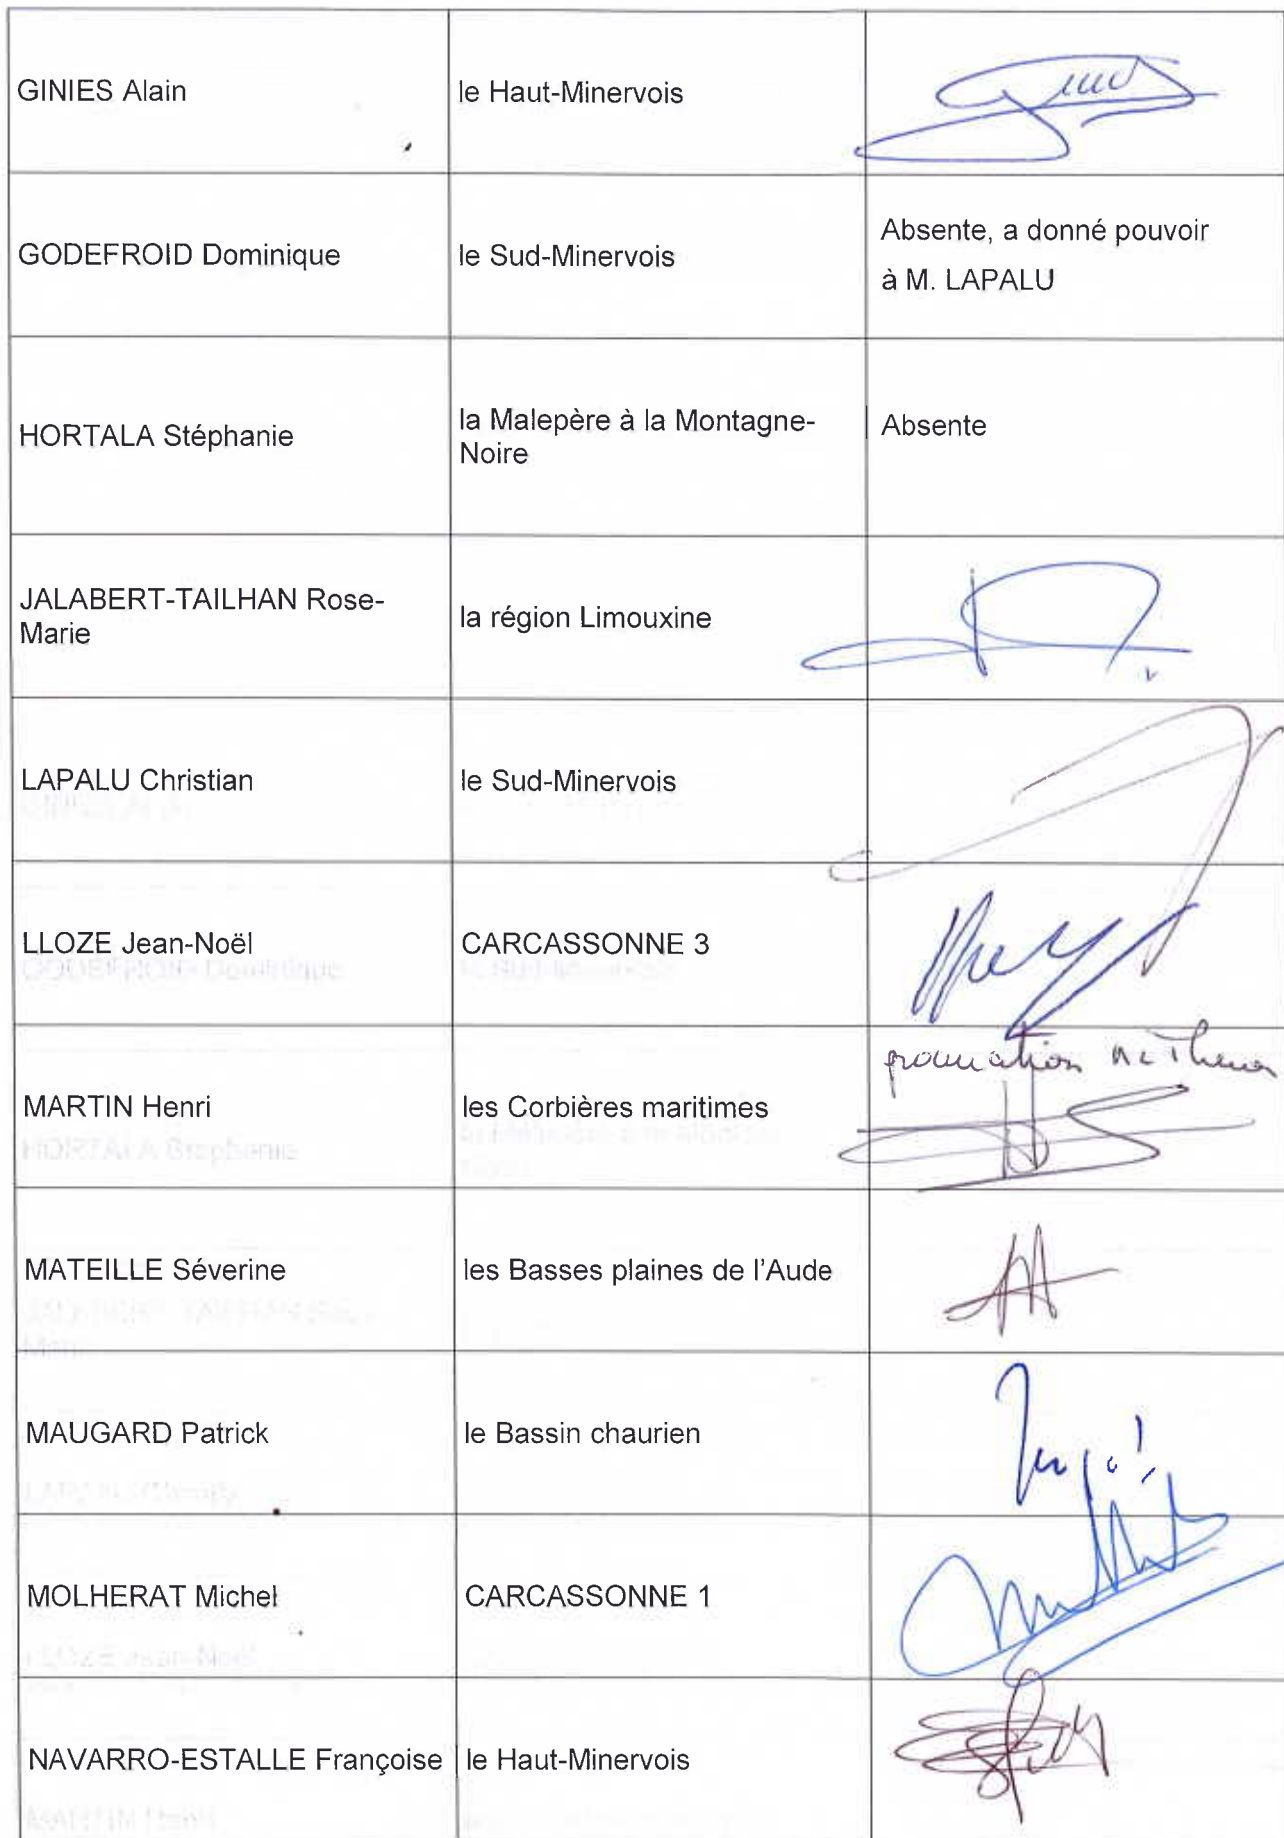 GINIES Alain
le Haut-Minervois
GODEFROID Dominique
le Sud-Minervois
Absente, a donné pouvoir
à M. LAPALU
HORTALA Stéphanie
la Malepère à la Montagne-
Noire
Absente
JALABERT-TAILHAN Rose-
Marie
la région Limouxine
LAPALU Christian
le Sud-Minervois
LLOZE Jean-Noël
CARCASSONNE 3
MARTIN Henri
les Corbières maritimes
MATEILLE Séverine
les Basses plaines de l'Aude
MAUGARD Patrick
le Bassin chaurien
MOLHERAT Michel
CARCASSONNE 1
NAVARRO-ESTALLE Françoise
le Haut-Minervois